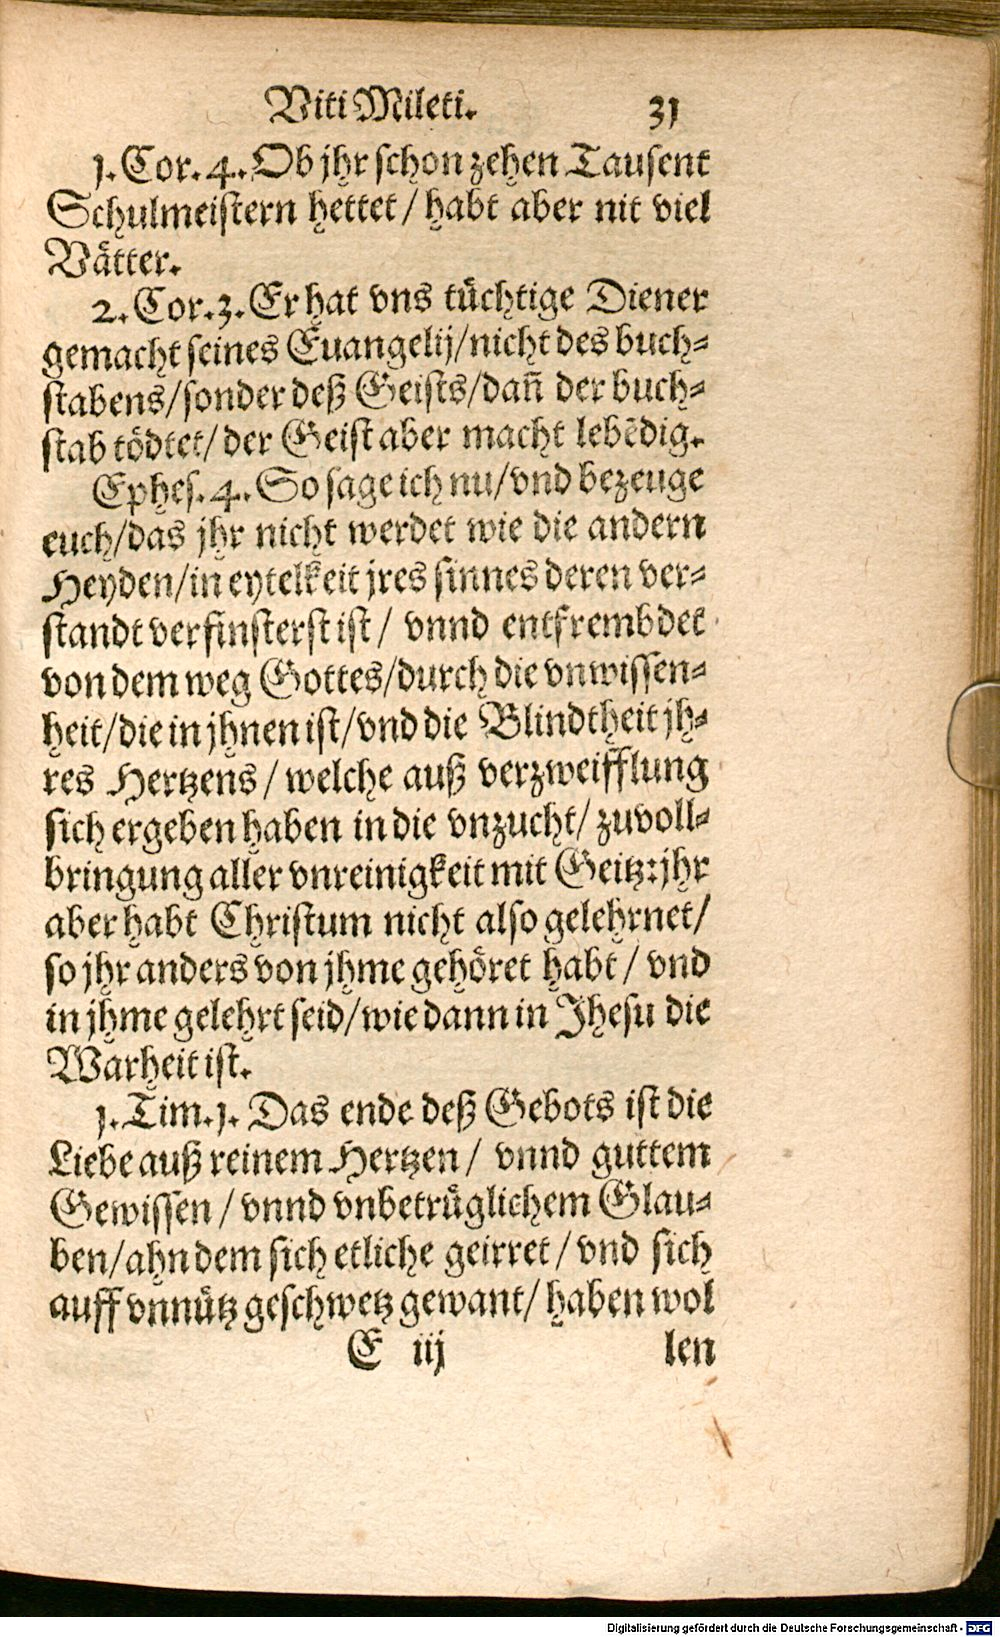 Viti Mileti. 31
1. Cor. 4. Ob jhr schon zehen Tausent
Schulmeistern hettet / habt aber nit viel
Vätter.
2. Cor. 3. Er hat vns tüchtige Diener
gemacht seines Euangelij/nicht des buch⸗
stabens/sonder deß Geists/dañ der buch⸗
stab tödtet/ der Geist aber macht lebẽdig.
Ephes. 4. So sage ich nu/vnd bezeuge
euch/das jhr nicht werdet wie die andern
Heyden/in eytelkeit jres sinnes deren ver⸗
standt verfinsterst ist/ vnnd entfrembdet
von dem weg Gottes/durch die vnwissen⸗
heit/die in jhnen ist/vnd die Blindtheit jh⸗
res Hertzens / welche auß verzweifflung
sich ergeben haben in die vnzucht/ zuvoll⸗
bringung aller vnreinigkeit mit Geitz: jhr
aber habt Christum nicht also gelehrnet/
so jhr anders von jhme gehöret habt / vnd
in jhme gelehrt seid/wie dann in Jhesu die
Warheit ist.
1. Tim. 1. Das ende deß Gebots ist die
Liebe auß reinem Hertzen / vnnd guttem
Gewissen / vnnd vnbetrüglichem Glau⸗
ben/ahn dem sich etliche geirret / vnd sich
auff vnnütz geschwetz gewant/ haben wol
E iij len
Digitalisierung gefördert durch die Deutsche Forschungsgemeinschaft - DFG